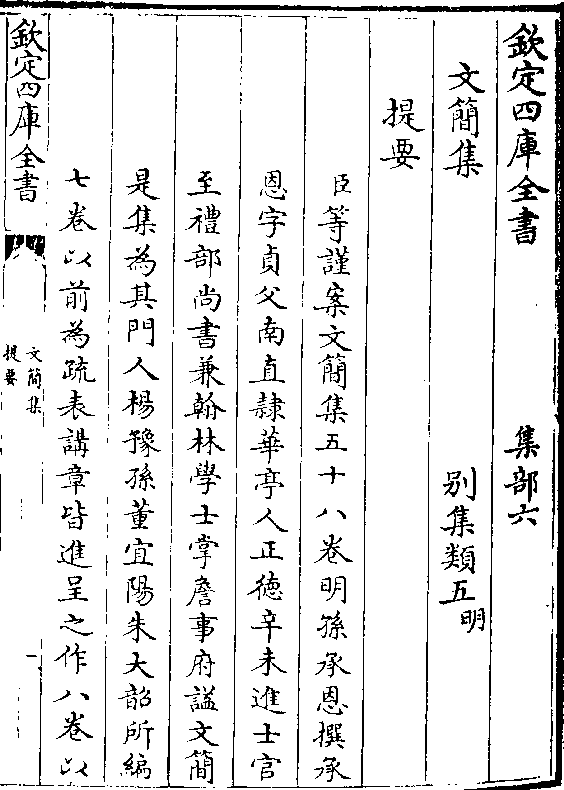 欽定四庫全書 集部六
文簡集 别集類五明
提要
臣等謹案文簡集五十八卷明孫承恩撰承
恩字貞父南直隷華亭人正德辛未進士官
至禮部尚書兼翰林學士掌詹事府謚文簡
是集為其門人楊豫孫董宜陽朱大韶所編
七卷以前為疏表講章皆進呈之作八卷以
欽定四庫全書
文簡集
提要
一